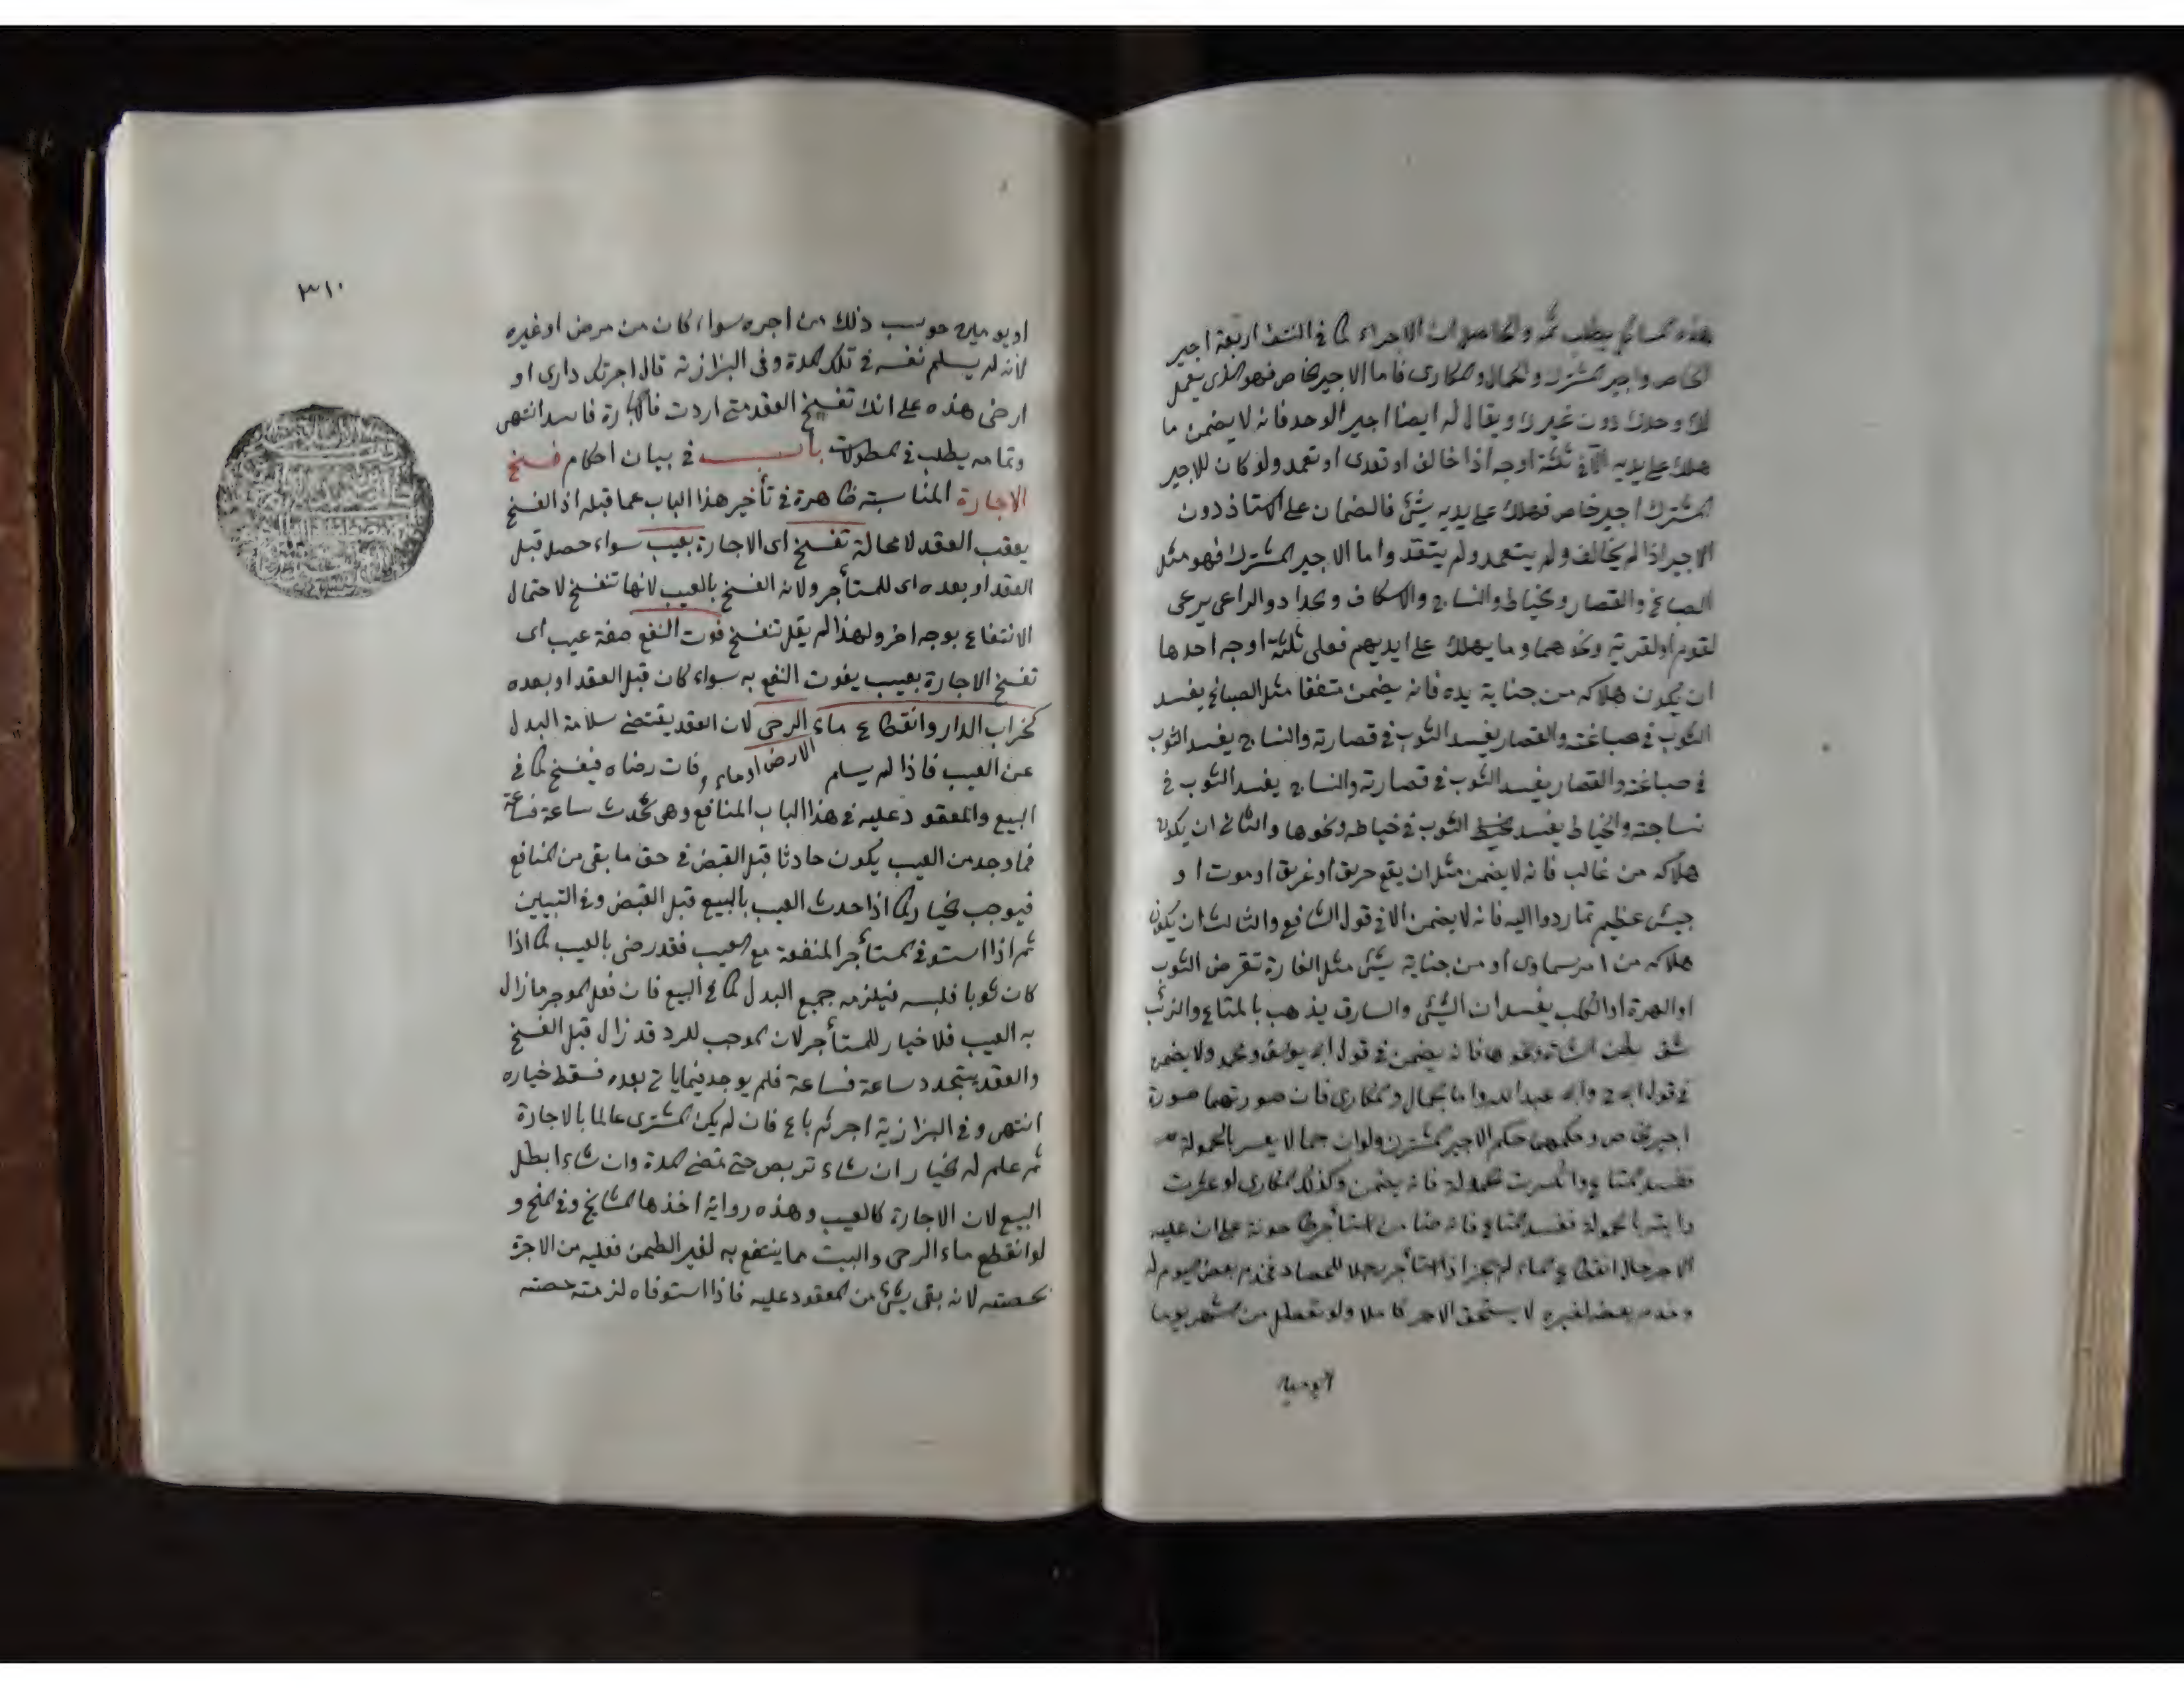 هذه المسائل يطلب ثمه والحاصل ان الاجراء كما في النتف اربعة اجير
الخاص واجير المشترك والحمال والمكارى فاما الاجير الخاص فهو الذى يعمل
لك وحدك دون غيرك ويقال له ايضا اجير الوحد فانه لا يضمن ما
هلك على يديه الا في ثلثة اوجه اذا خالف او تعدى او تعمد ولو كان للاجير
المشترك اجير خاص فهلك على يديه شئ فالضمان على الاستاذ دون
الاجير اذا لم يخالف ولم يتعمد ولم يتعد واما الاجير المشترك فهو مثل
الصباغ والقصار والخياط والنساج والاسكاف والحداد والراعى يرعى
لقوم او لقرية ونحوهما وما يهلك على ايديهم فعلى ثلثة اوجه احدها
ان يكون هلاكه من جناية يده فانه يضمن متفقا مثل الصباغ يفسد
الثوب في صباغته والقصار يفسد الثوب في قصارته والنساج يفسد الثوب
في صباغته والقصار يفسد الثوب في قصارته والنساج يفسد الثوب في
نساجته والخياط يفسد الثوب في خياطه ونحوها والثانى ان يكون
هلاكه من غالب فانه لا يضمن مثل ان يقع حريق او غريق او موت او
جيش عظيم اليه فانه لا يضمن الا في قول الشافع والثالث ان يكون
هلاكه من امر سماوى او من جناية شئ مثل الفارة تقرض الثوب
او الهرة او الكلب يفسدان الشئ والسارق يذهب بالمتاع والذئب
شق بطن الشاة ونحوها فانه يضمن في قول ابى يوسف ومحمد ولا يضمن
في قول ابى ح وابى عبد الله واما الحمال والمكارى فان صورتهما صورة
اجير الخاص وحكمهما حكم الاجير المشترك ولو ان حمالا بالحمولة
ففسد المتاع وانكسرت الحمولة فانه يضمن وكذلك المكارى لو عثرت
دابته بالحمولة ففسد المتاع فانه ضامن استأجر طاحونة على ان عليه
الاجر حال انقطاع الماء لم يجز اذا استأجر رجلا للحصاد فخدم بعض اليوم له
وخدم بعضه لغيره لا يستحق الاجر كاملا ولو تعطل من الشهر يوما
او يومين
٣١٠
او يومين حوسب ذلك من اجره سواء كان من مرض او غيره
لانه لم يسلم نفسه في تلك المدة وفى البزازية قال اجرتك دارى او
ارضى هذه على انك تفسخ العقد متى اردت فالاجارة فاسد انتهى
وتمامه يطلب في المطولات باب في بيان احكام فسخ
الاجارة المناسبة ظاهرة في تأخير هذا الباب عما قبله اذ الفسخ
يعقب العقد لا محالة تفسخ اى الاجارة بعيب سواء حصل قبل
العقد او بعده اى للمستأجر ولاية الفسخ بالعيب لانها تنفسخ لاحتمال
الانتفاع بوجه اخر ولهذا لم يقل تنفسخ فوت النفع صفة عيب اى
تفسخ الاجارة بعيب يفوت النفع به سواء كان قبل العقد او بعده
كخراب الدار وانقطاع ماء الرحى لان العقد يقتضى سلامة البدل
عن العيب فاذا لم يسلم الارض او ماء وفات رضاه فيفسخ كما في
البيع والمعقود عليه في هذا الباب المنافع وهى تحدث ساعة فساعة
فما وجد من العيب يكون حادثا قبل القبض في حق ما بقى من المنافع
فيوجب الخيار كما اذا حدث العيب بالبيع قبل القبض وفى التبيين
ثم اذا استوفى المستأجر المنفعة مع العيب فقد رضى بالعيب كما اذا
كان ثوبا فلبسه فيلزمه جميع البدل كما في البيع فان فعل الموجر ما زال
به العيب فلا خيار للمستأجر لان الموجب للرد قد زال قبل الفسخ
والعقد يتجدد ساعة فساعة فلم يوجد فيما يأتى بعده فسقط خياره
انتهى وفى البزازية اجر ثم باع فان لم يكن المشترى عالما بالاجارة
ثم علم له الخيار ان شاء تربص حتى تمضى المدة وان شاء ابطل
البيع لان الاجارة كالعيب وهذه رواية اخذها المشايخ وفى المنح و
لو انقطع ماء الرحى والبيت مما ينتفع به لغير الطحن فعليه من الاجرة
بحصته لانه بقى شئ من المعقود عليه فاذا استوفاه لزمته حصته